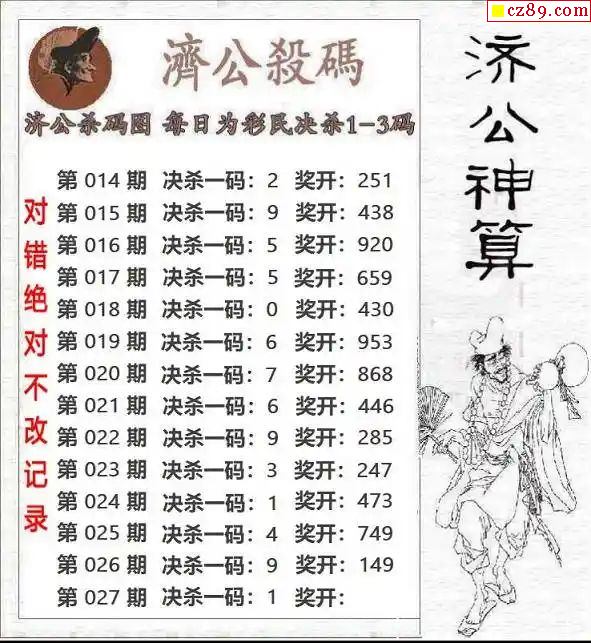 cz89.com
濟公殺碼
济公杀码图 每日为彩民决杀1-3码
第 014 期 决杀一码：2 奖开：251
第 015 期 决杀一码：9 奖开：438
第 016 期 决杀一码：5 奖开：920
第 017 期 决杀一码：5 奖开：659
第 018 期 决杀一码：0 奖开：430
第 019 期 决杀一码：6 奖开：953
第 020 期 决杀一码：7 奖开：868
第 021 期 决杀一码：6 奖开：446
第 022 期 决杀一码：9 奖开：285
第 023 期 决杀一码：3 奖开：247
第 024 期 决杀一码：1 奖开：473
第 025 期 决杀一码：4 奖开：749
第 026 期 决杀一码：9 奖开：149
第 027 期 决杀一码：1 奖开：
对错绝对不改记录
济公神算